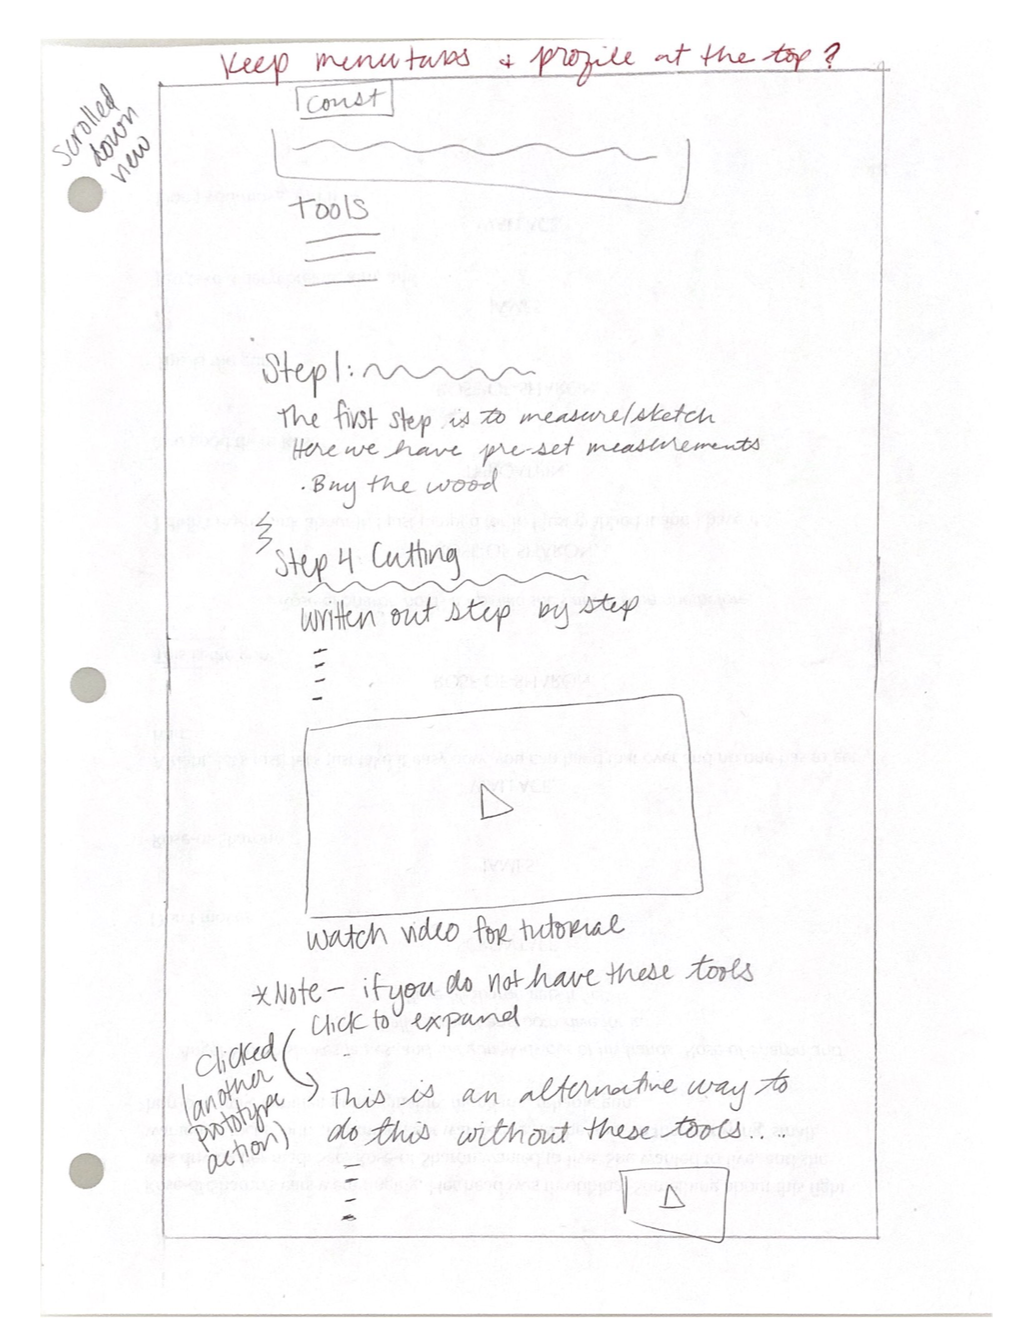 Keep menu tabs + profile at the top?
Scrolled
down
new
Const
Tools
Step 1:
The first step is to measure/sketch
Here we have pre-set measurements
. Buy the wood
Step 4 Cutting
written out step by step
Watch video for tutorial
*Note - if you do not have these tools
Click to expand
Clicked
(another
prototype
action)
This is an alternative way to
do this without these tools....